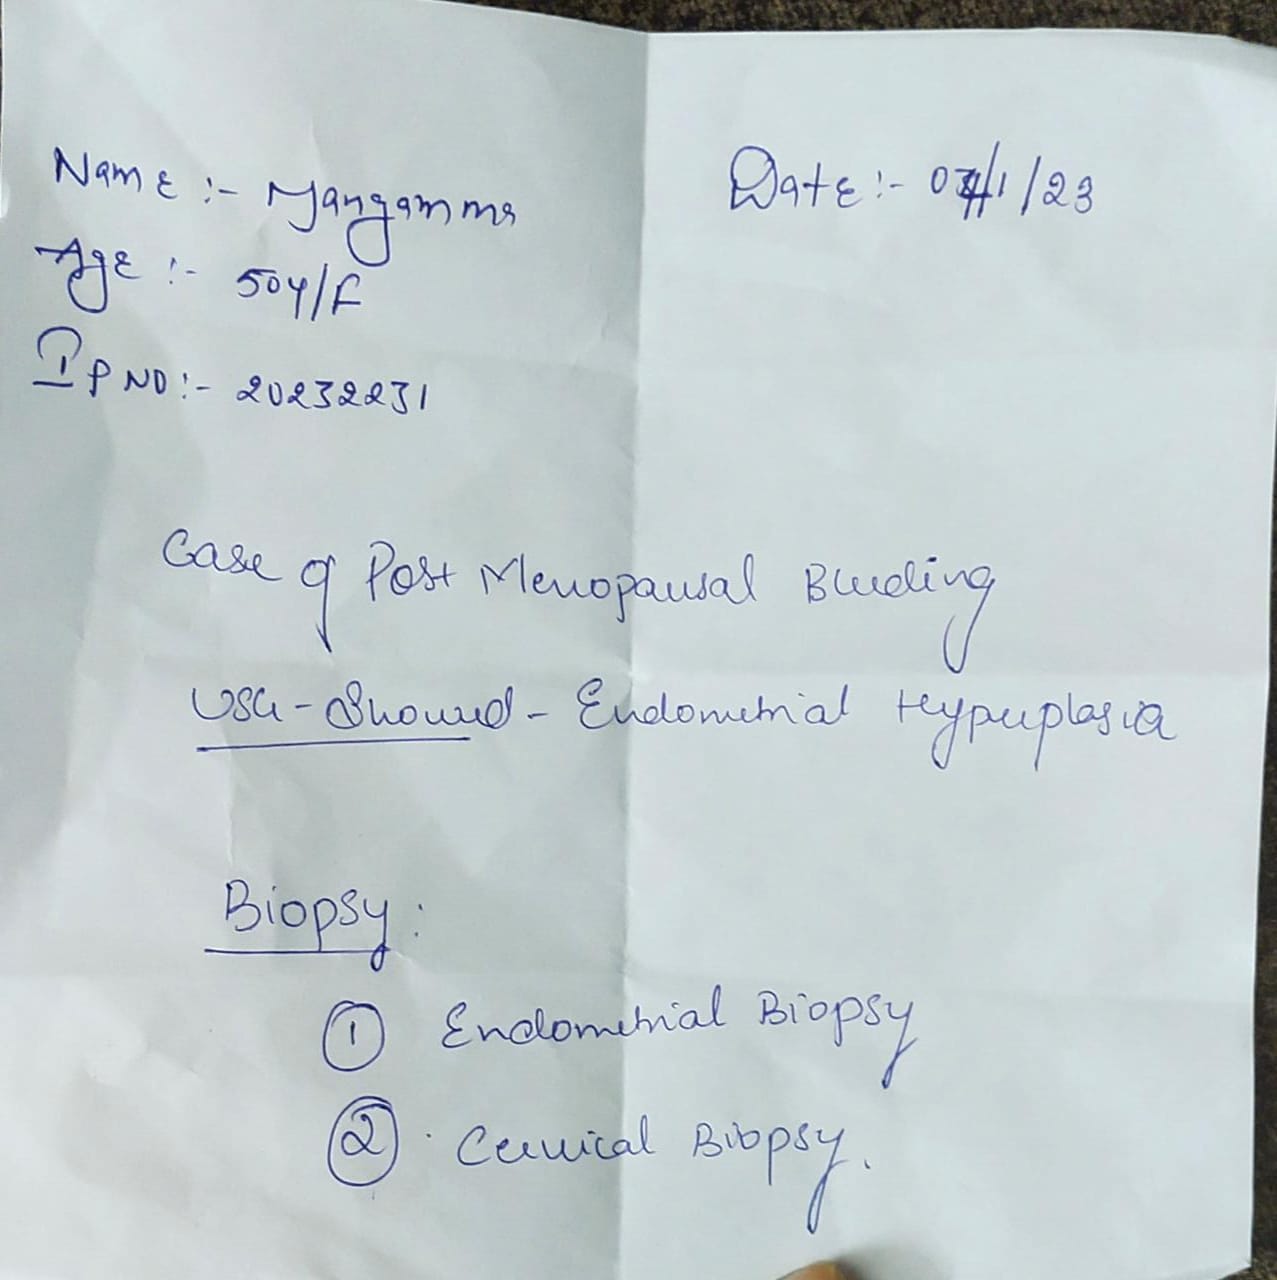 Name :- Mangamma
Date :- /1/23
Age :- 50y/F
IP NO :- 20232231
Case of Post Menopausal Bleeding
USG - Showed - Endometrial Hyperplasia
Biopsy :
① Endometrial Biopsy
② Cervical Biopsy.